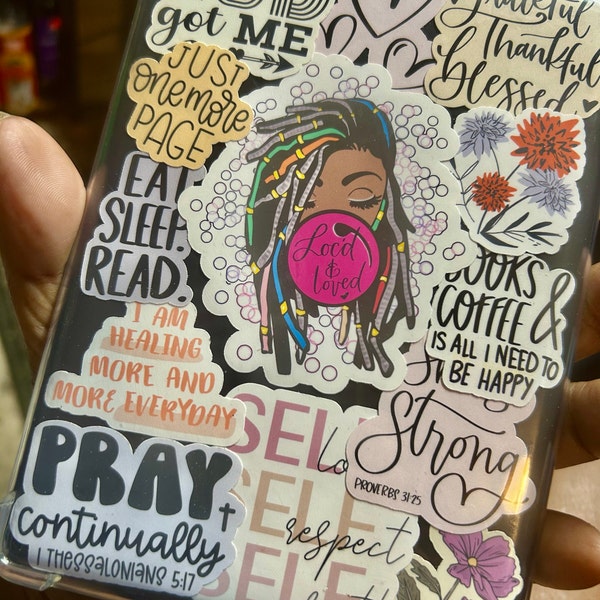 got ME
Grateful
Thankful
blessed
JUST
one more
PAGE
EAT
SLEEP.
READ.
Loc'd
&
loved
BOOKS
COFFEE &
IS ALL I NEED TO
BE HAPPY
I AM
HEALING
MORE AND
MORE EVERYDAY
Strong
PROVERBS 31:25
PRAY
continually
1 THESSALONIANS 5:17
SELF
SELF
respect
SELF